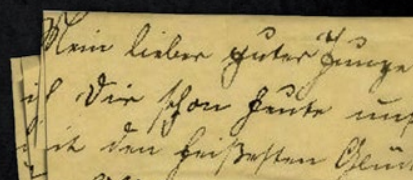 Mein lieber guter Junge
Dir schon heute uns
it den heißesten Glüc